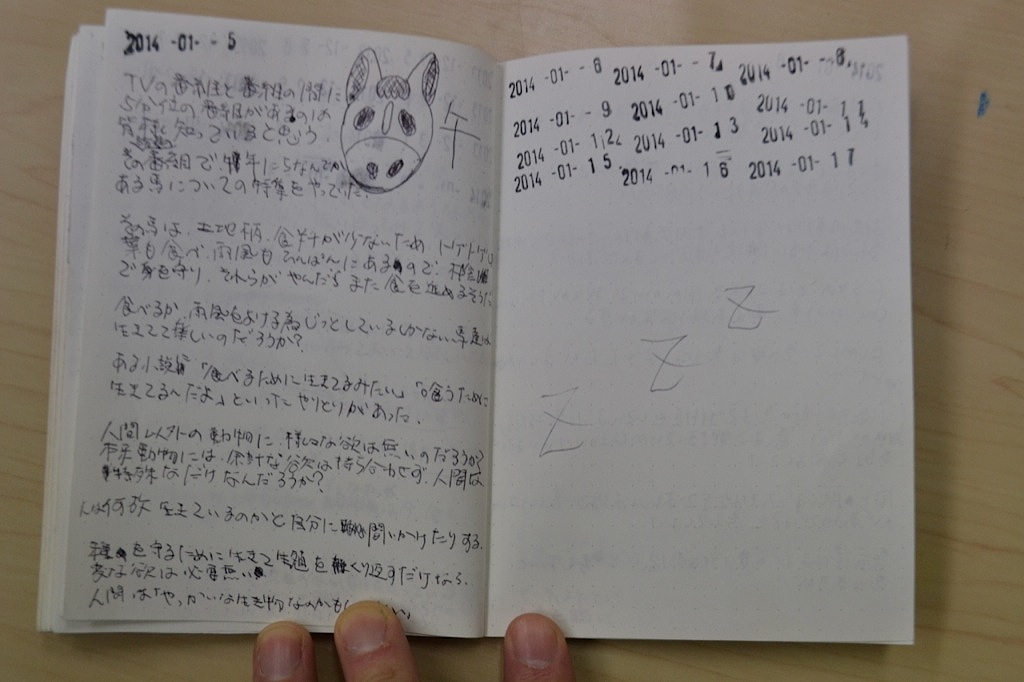 2014 -01- - 5
TVの番組と番組の間に
5分位の番組があるのは
皆様も知っていると思う。
その番組で、午にちなんでか
ある馬についての特集をやってた。
午
その馬は、土地柄、食料が少ないため、トゲトゲし
葉も食べ、雨風も
で身を守り、それらがやんだらまた食を進めるそうだ
食べるか、雨風をよける為じっとしているしかない馬達は
生きてて楽しいのだろうか?
ある小説に「食べるために生きてるみたい」「食うために
生きてるんだよ」といったやりとりがあった。
人間以外の動物に、様々な欲は無いのだろうか?
本来動物には、余計な欲は持ち合わせず、人間は
特殊なだけなんだろうか?
人は何故生きているのかと自分に問いかけたりする。
種を守るために生きて生殖をくり返すだけなら、
変な欲は必要無い。
人間はやっかいな生き物なのかもしれない
2014 -01- - 6 2014 -01- - 7 2014 -01- - 8
2014 -01- - 9 2014 -01- 1 0 2014 -01- 1 1
2014 -01- 1 2 2014 -01- 1 3 2014 -01- 1 4
2014 -01- 1 5 2014 -01- 1 6 2014 -01- 1 7
Z
Z
Z